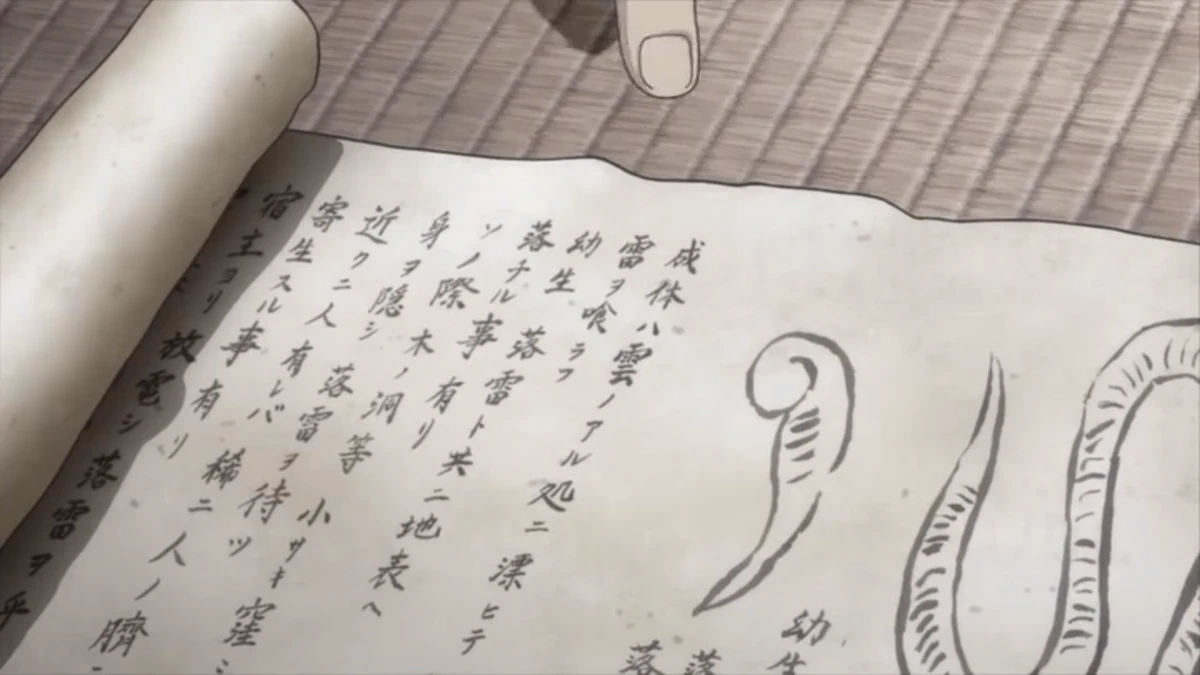 成体ハ雲ノアル処ニ漂ヒテ
雷ヲ喰ラフ
幼生 落雷ト共ニ地表ヘ
落チル事有リ
ソノ際 木ノ洞等 小サキ窪
身ヲ隠シ 落雷ヲ待ツ
近クニ人有レバ 稀ニ人ノ臍
寄生スル事有リ
宿主ヨリ放電シ落雷ヲ
幼生
落
落